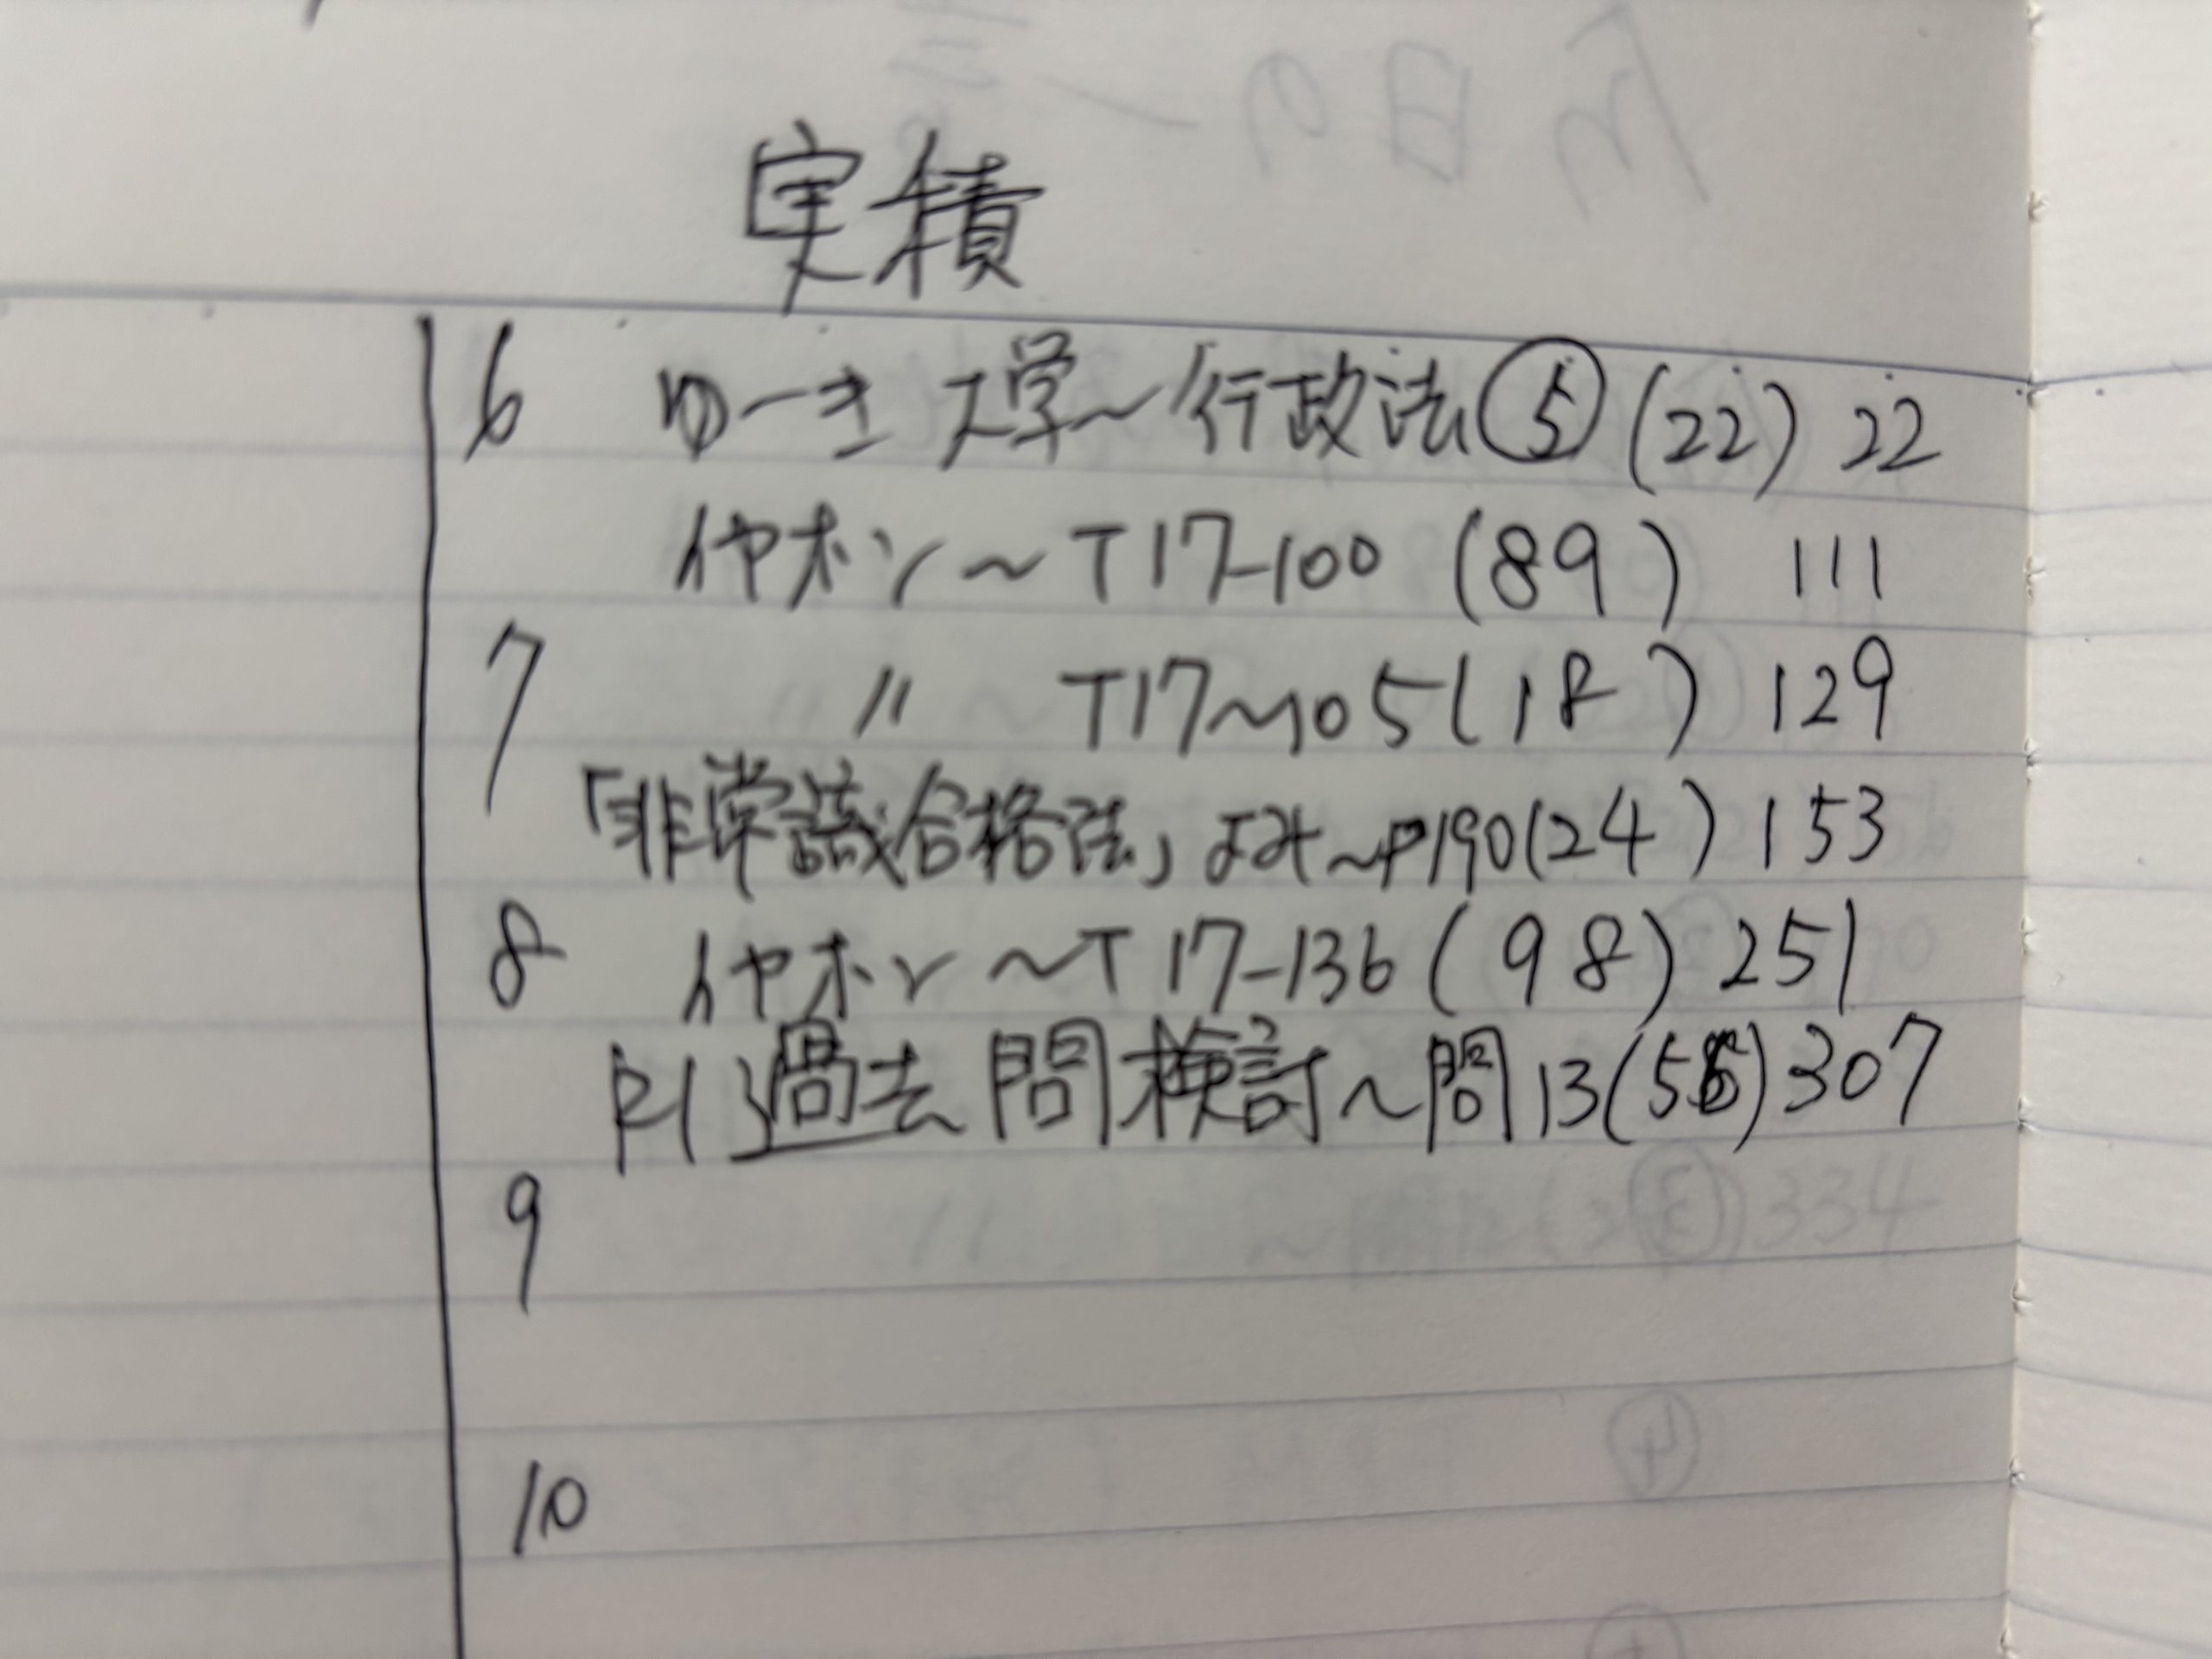 実積
6 ゆーき大学〜行政法⑤(22) 22
イヤホン〜T17-100 (89) 111
7 〃 〜T17〜105(18) 129
「非常識合格法」よみ〜P190(24) 153
8 イヤホン〜T17-136(98) 251
R1過去問検討〜問13(56)307
9
10